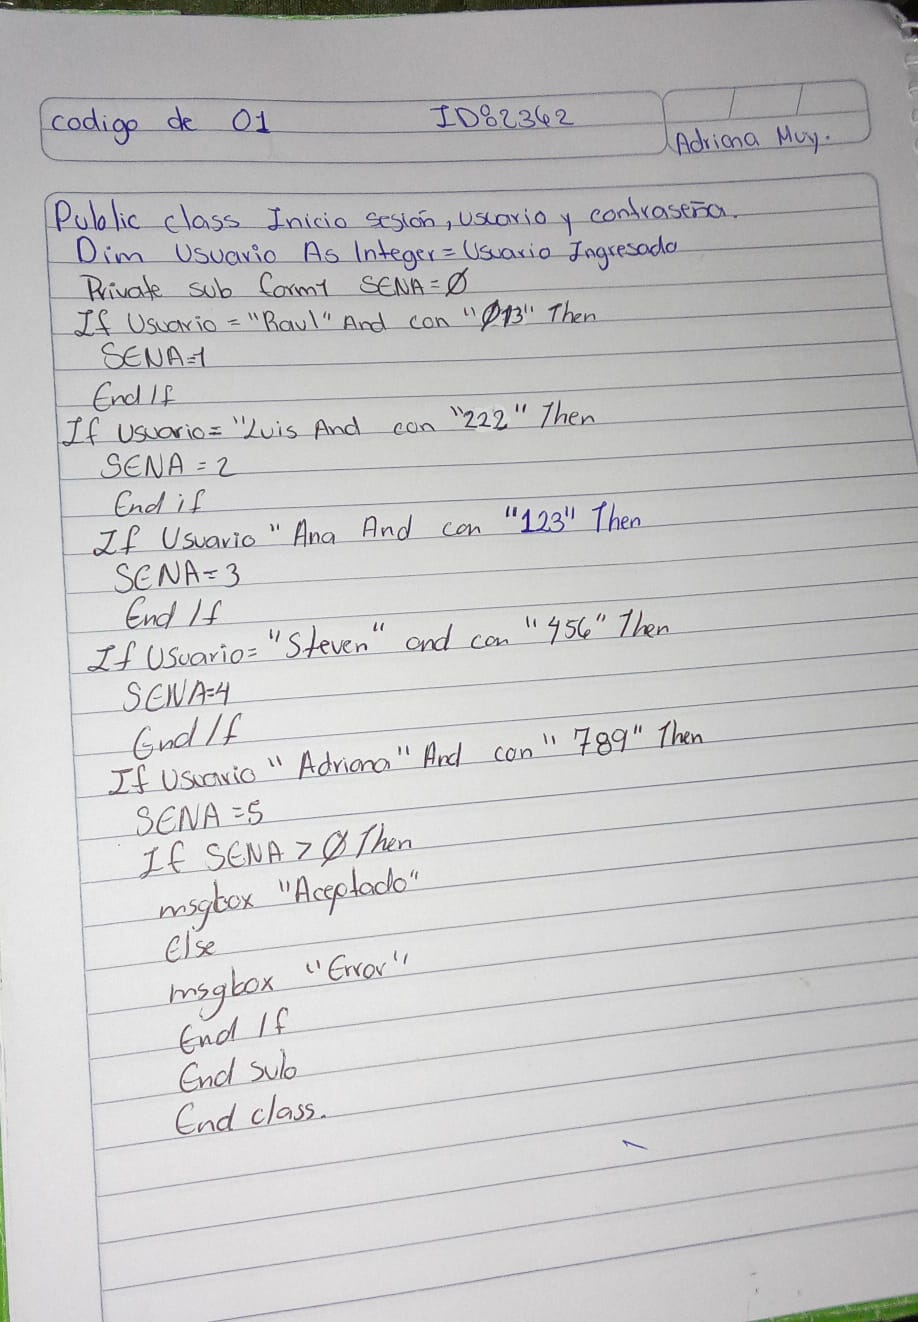 codigo de 01 ID82342
Adriana Muy.
Public class Inicio sesión, Usuario y contraseña.
Dim Usuario As Integer = Usuario Ingresado
Private sub form1 SENA = Ø
If Usuario = "Raul" And con "Ø13" Then
SENA=1
End If
If Usuario = "Luis And con "222" Then
SENA = 2
End if
If Usuario "Ana And con "123" Then
SENA = 3
End If
If Usuario= "Steven" and con "456" Then
SENA=4
End If
If Usuario "Adriana" And con "789" Then
SENA =5
If SENA > Ø Then
msgbox "Aceptado"
Else
msgbox "Error"
End If
End sub
End class.